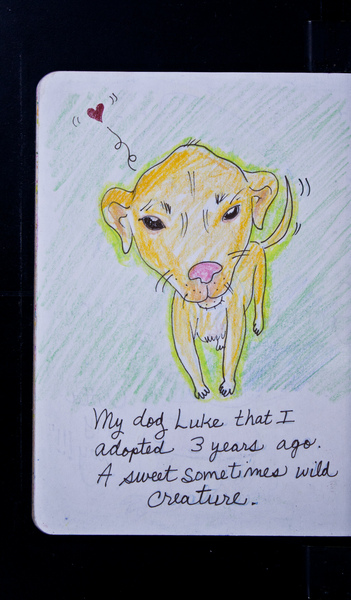 My dog Luke that I
adopted 3 years ago.
A sweet sometimes wild
creature.